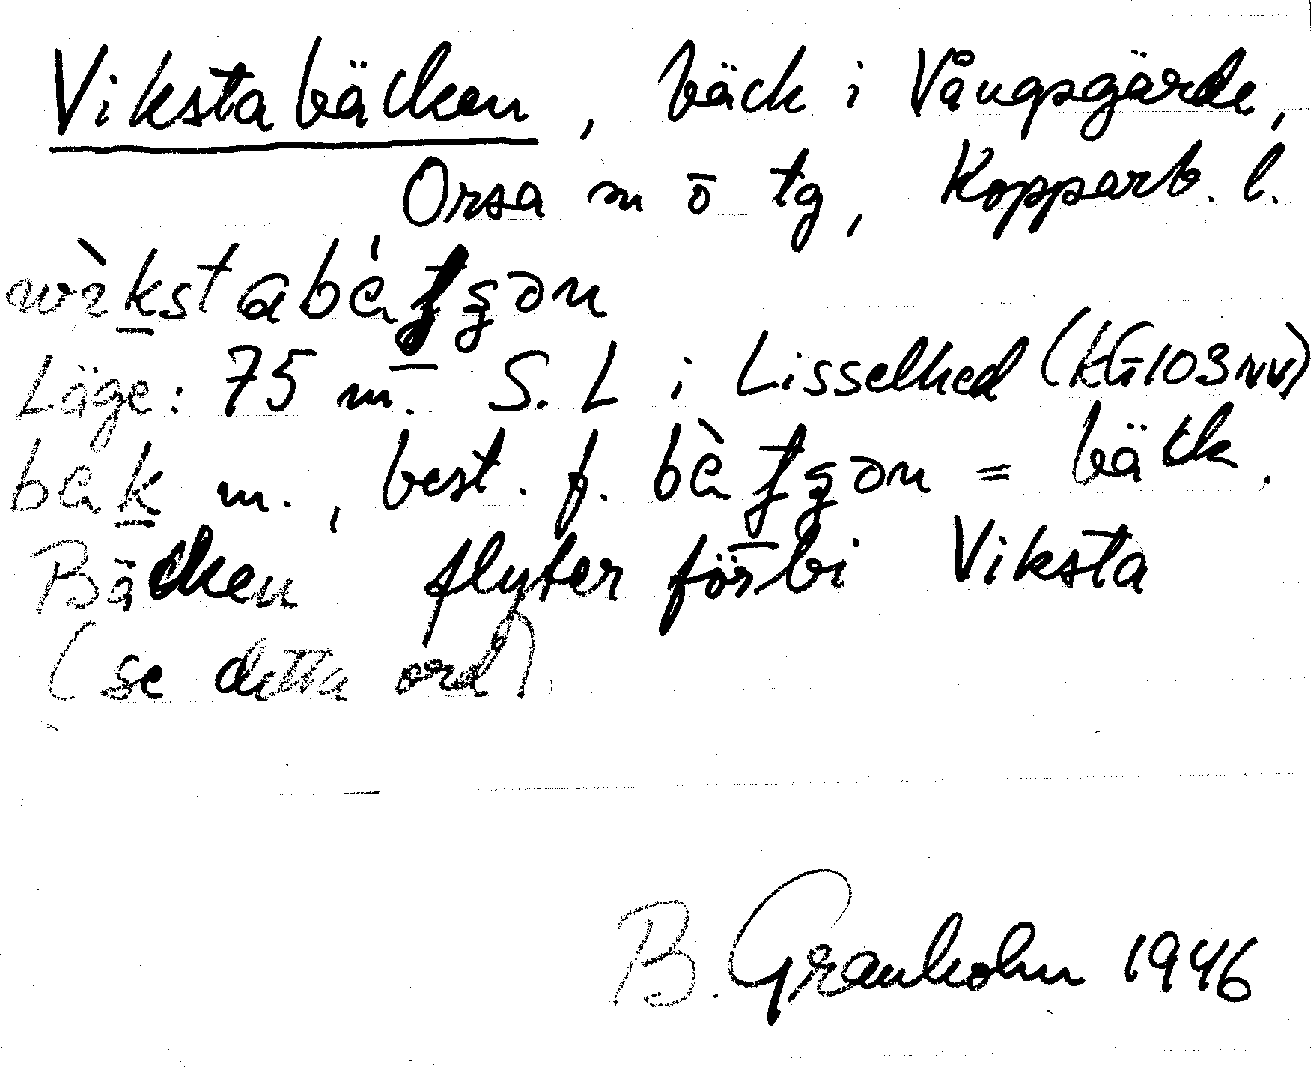 Vikstabäcken, bäck i Vångsgärde,
Orsa m ö tg, Kopparb. l.
Läge: 75 m. S. L i Lisselhed (kG103NV)
m., best. f. = bäck.
Bäcken flyter förbi Viksta
(se detta ord)
B. Granholm 1946